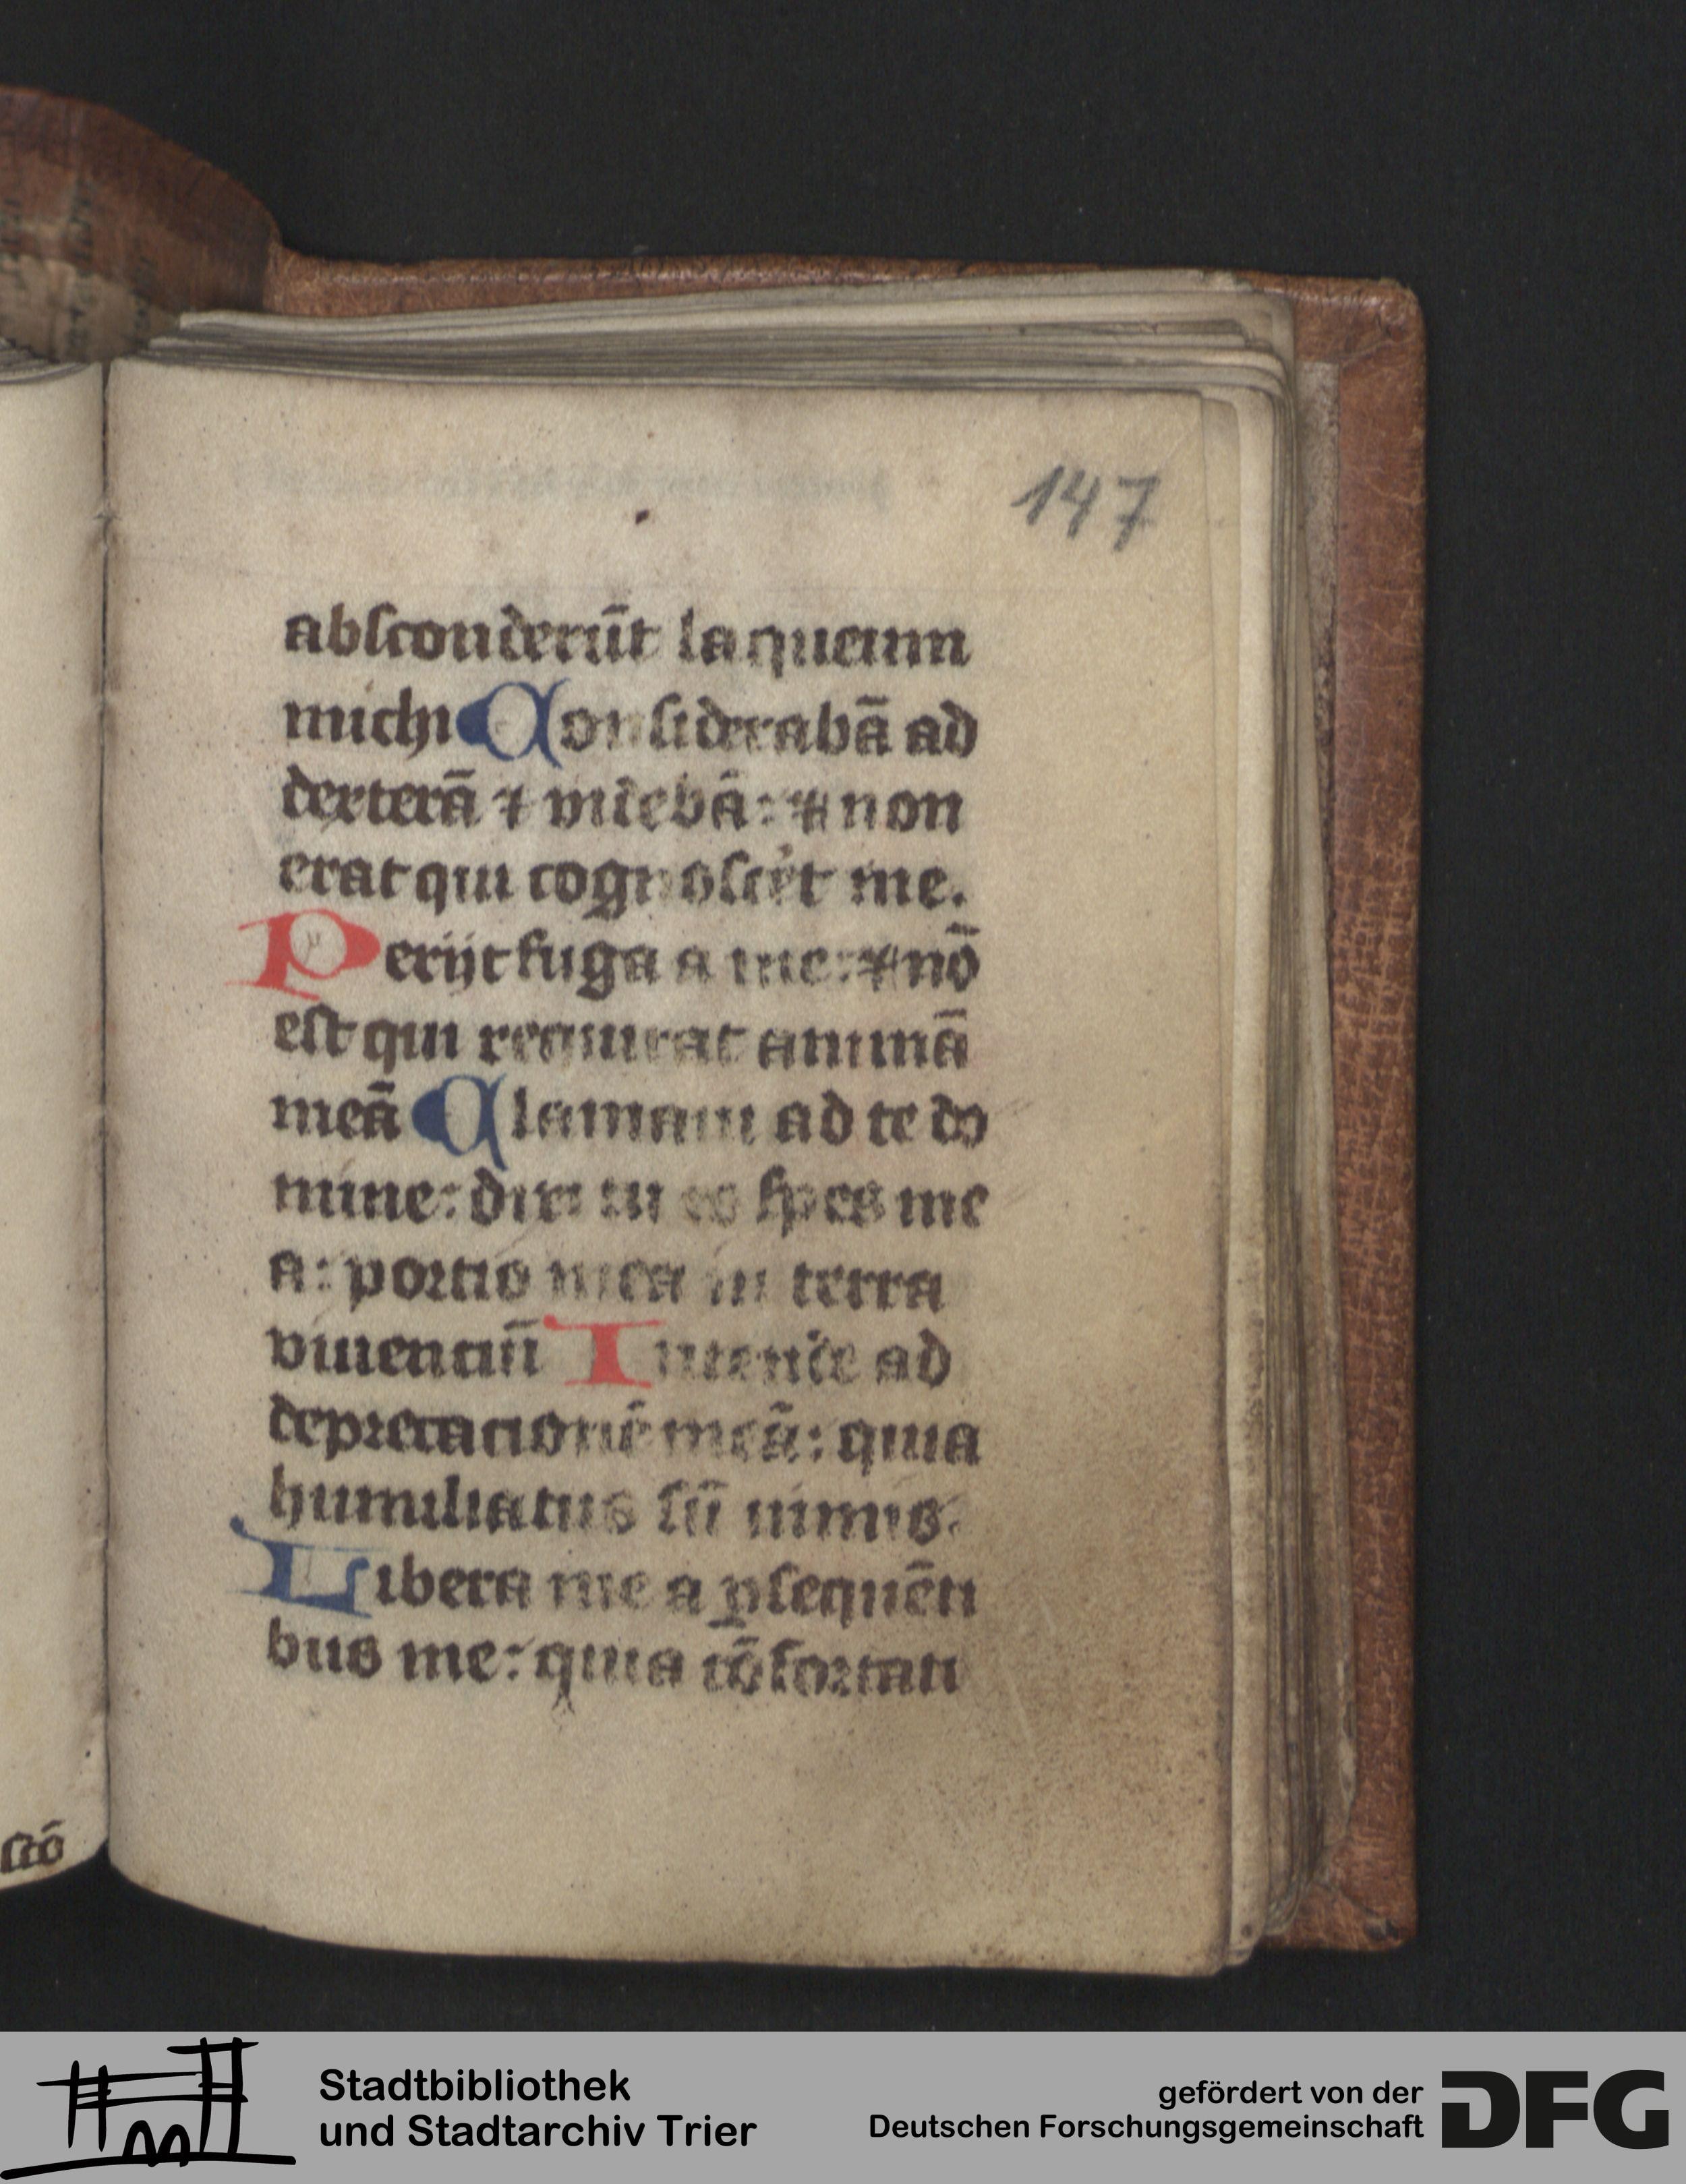 147
absconderūt laqueum
michi Considerabā ad
dexterā ⁊ videbā: ⁊ non
erat qui cognoscēt me.
Perijt fuga a me: ⁊ nō
est qui requirat animā
meā Clamaui ad te do
mine: dixi tu es spes me
a: portio mea in terra
viuenciū Intende ad
deprecacionē meā: quia
humiliatus sū nimis.
Libera me a ꝑsequēti
bus me: quia cōfortati
stō
Stadtbibliothek
und Stadtarchiv Trier
gefördert von der
Deutschen Forschungsgemeinschaft
DFG